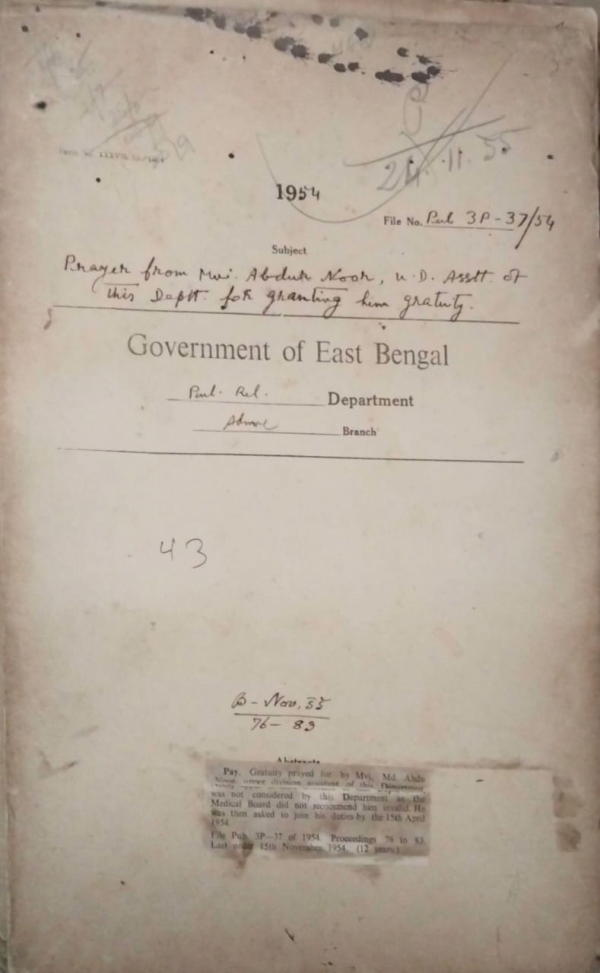 24.11.55
1954
File No. Pub 3P-37/54
Subject
Prayer from Mvi. Abdur Noor, U.D. Asstt. of
this Deptt. for granting him gratuty.
Government of East Bengal
Pub. Rel. Department
Branch
43
B - Nov, 55
76 - 83
Abstracts
Pay. Gratuity prayed for by Mvi. Md. Abdu
was not considered by this Department as the
Medical Board did not recommend him invalid. He
was then asked to join his duties by the 15th April
1954.
File Pub. 3P—37 of 1954. Proceedings 76 to 83.
Last order 15th November 1954. (12 years)